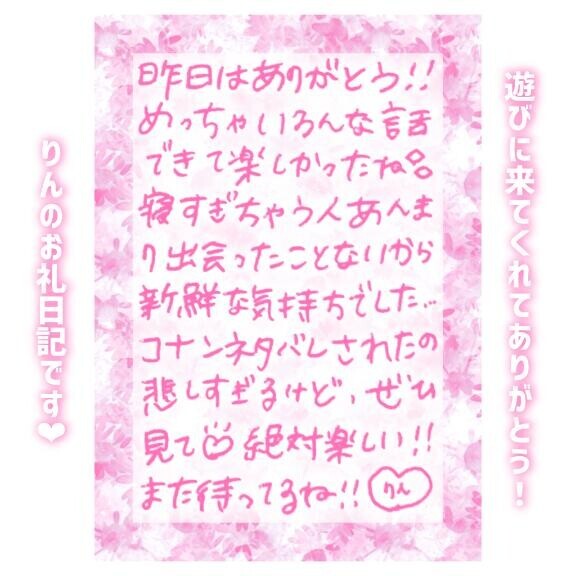 遊びに来てくれてありがとう!
昨日はありがとう!!
めっちゃいろんな話
できて楽しかったね
寝すぎちゃう人あんま
り出会ったことないから
新鮮な気持ちでした…
コナンネタバレされたの
悲しすぎるけど、ぜひ
見て 絶対楽しい!!
また待ってるね!!
りん
りんのお礼日記です♥